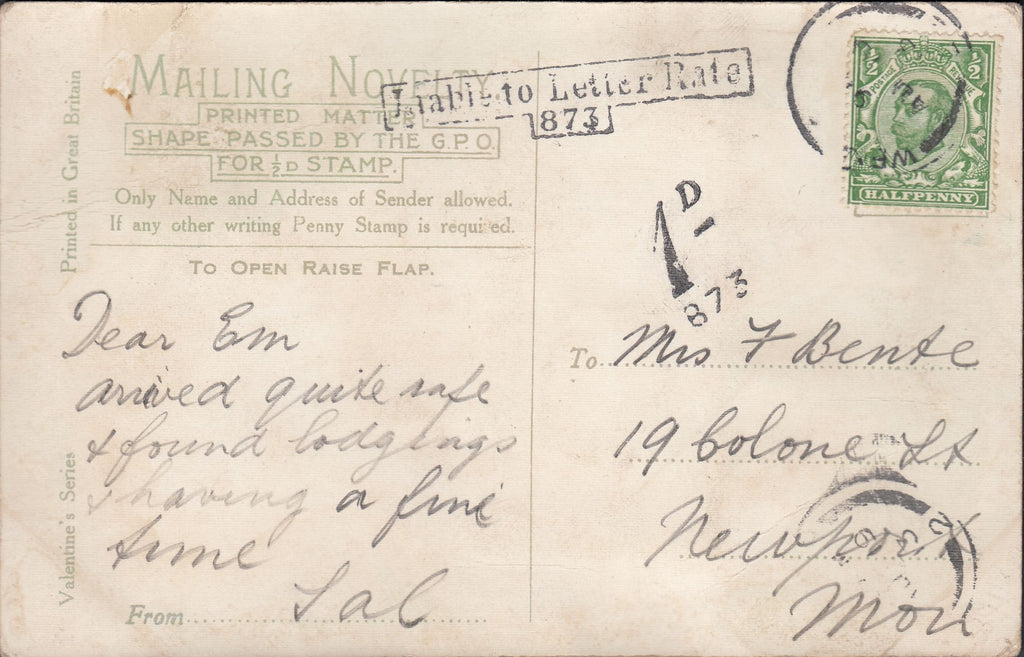 MAILING NOVELTY
PRINTED MATTER
SHAPE PASSED BY THE G.P.O.
FOR ½D STAMP.
Only Name and Address of Sender allowed.
If any other writing Penny Stamp is required.
TO OPEN RAISE FLAP.
Printed in Great Britain
Valentine's Series
Dear Em
arrived quite safe
& found lodgings
& having a fine
time
From Sal
Liable to Letter Rate
873
1D
873
½ ½
POSTAGE REVENUE
HALFPENNY
To Mrs F Bente
19 Colone St
Newport
Mon